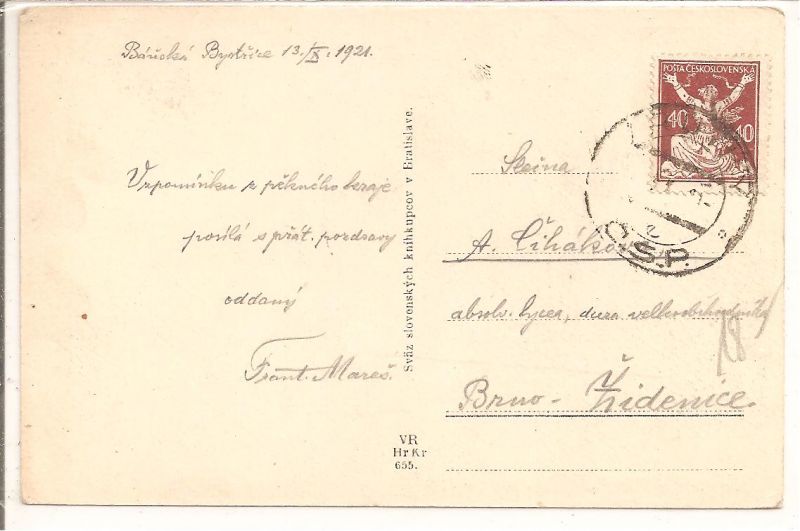 Báňská Bystřice 13./X. 1921.
Vzpomínku z pěkného kraje
posílá s přát. pozdravy
oddaný
Frant. Mareš.
Svaz slovenských kníhkupcov v Bratislave.
VR
Hr Kr
655.
POŠTA ČESKOSLOVENSKÁ
40 40
Č.S.P.
Slečna
A. Čiháková
absolv. lycea, dcera velkoobchodníka
Brno - Židenice.